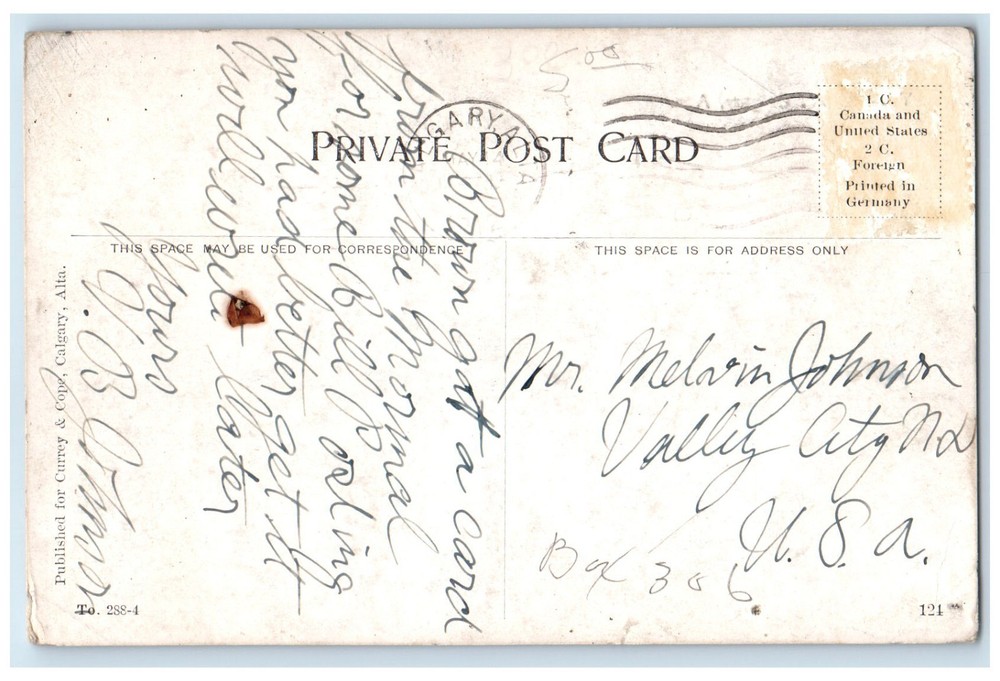 PRIVATE POST CARD
GARY ALTA
1 C.
Canada and
United States
2 C.
Foreign
Printed in
Germany
THIS SPACE MAY BE USED FOR CORRESPONDENCE
THIS SPACE IS FOR ADDRESS ONLY
Brown got a card
from the Normal
for one Bill
you had better get it
will write later
Yours
Johnson
Mr. Melvin Johnson
Valley City ND
U.S.A.
Box 306
Published for Currey & Cope, Calgary, Alta.
To. 288-4
124